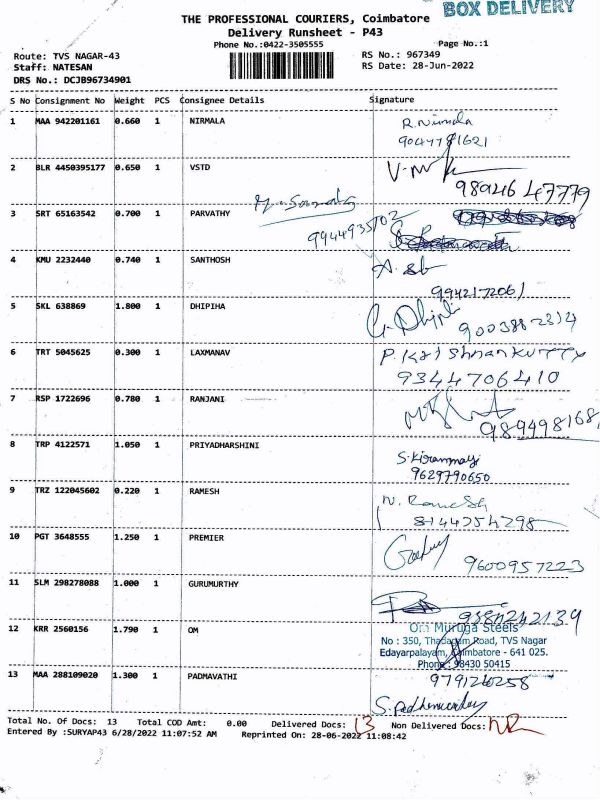 BOX DELIVERY
THE PROFESSIONAL COURIERS, Coimbatore
Delivery Runsheet - P43
Phone No.:0422-3505555 Page No.:1
Route: TVS NAGAR-43 RS No.: 967349
Staff: NATESAN RS Date: 28-Jun-2022
DRS No.: DCJB96734901
S No Consignment No Weight PCS Consignee Details Signature
1 MAA 942201161 0.660 1 NIRMALA R. Nirmala
9047781621
2 BLR 4450395177 0.650 1 VSTD
98946 47779
3 SRT 65163542 0.700 1 PARVATHY
9944935702
4 KMU 2232440 0.740 1 SANTHOSH
9942172061
5 SKL 638869 1.800 1 DHIPIHA G. Dhipi
9003882214
6 TRT 5045625 0.300 1 LAXMANAV P. Krishnankutty
9344706410
7 RSP 1722696 0.780 1 RANJANI
989498168
8 TRP 4122571 1.050 1 PRIYADHARSHINI S. Kiranmayi
9629790650
9 TRZ 122045602 0.220 1 RAMESH N. Ramesh
8144354298
10 PGT 3648555 1.250 1 PREMIER
9600957223
11 SLM 298278088 1.000 1 GURUMURTHY
9380242139
12 KRR 2560156 1.790 1 OM Om Muruga Steels
No : 350, Thadagam Road, TVS Nagar
Edayarpalayam, Coimbatore - 641 025.
Phone : 98430 50415
13 MAA 288109020 1.300 1 PADMAVATHI 9791260258
Total No. Of Docs: 13 Total COD Amt: 0.00 Delivered Docs: 13 Non Delivered Docs:
Entered By :SURYAP43 6/28/2022 11:07:52 AM Reprinted On: 28-06-2022 11:08:42